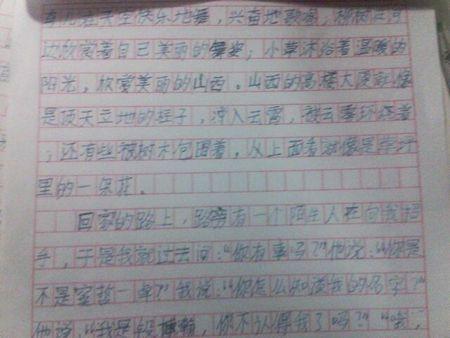 鸟儿在天空快乐地舞，兴奋地歌唱；柳树在河
边欣赏着自己美丽的舞姿；小草沐浴着温暖的
阳光，欣赏美丽的山西。山西的高楼大厦就像
是顶天立地的柱子，冲入云霄，被云雾环绕着
；还有些被树木包围着，从上面看就像是学汁
里的一朵花。
回家的路上，路旁有一个陌生人在向我招
手，于是我就过去问：“你有事吗？”他说：“你是
不是室哲一拿？”我说：“你怎么知道我的名字？”
他说：“我是段博瀚，你不认得我了吗？”“哦，